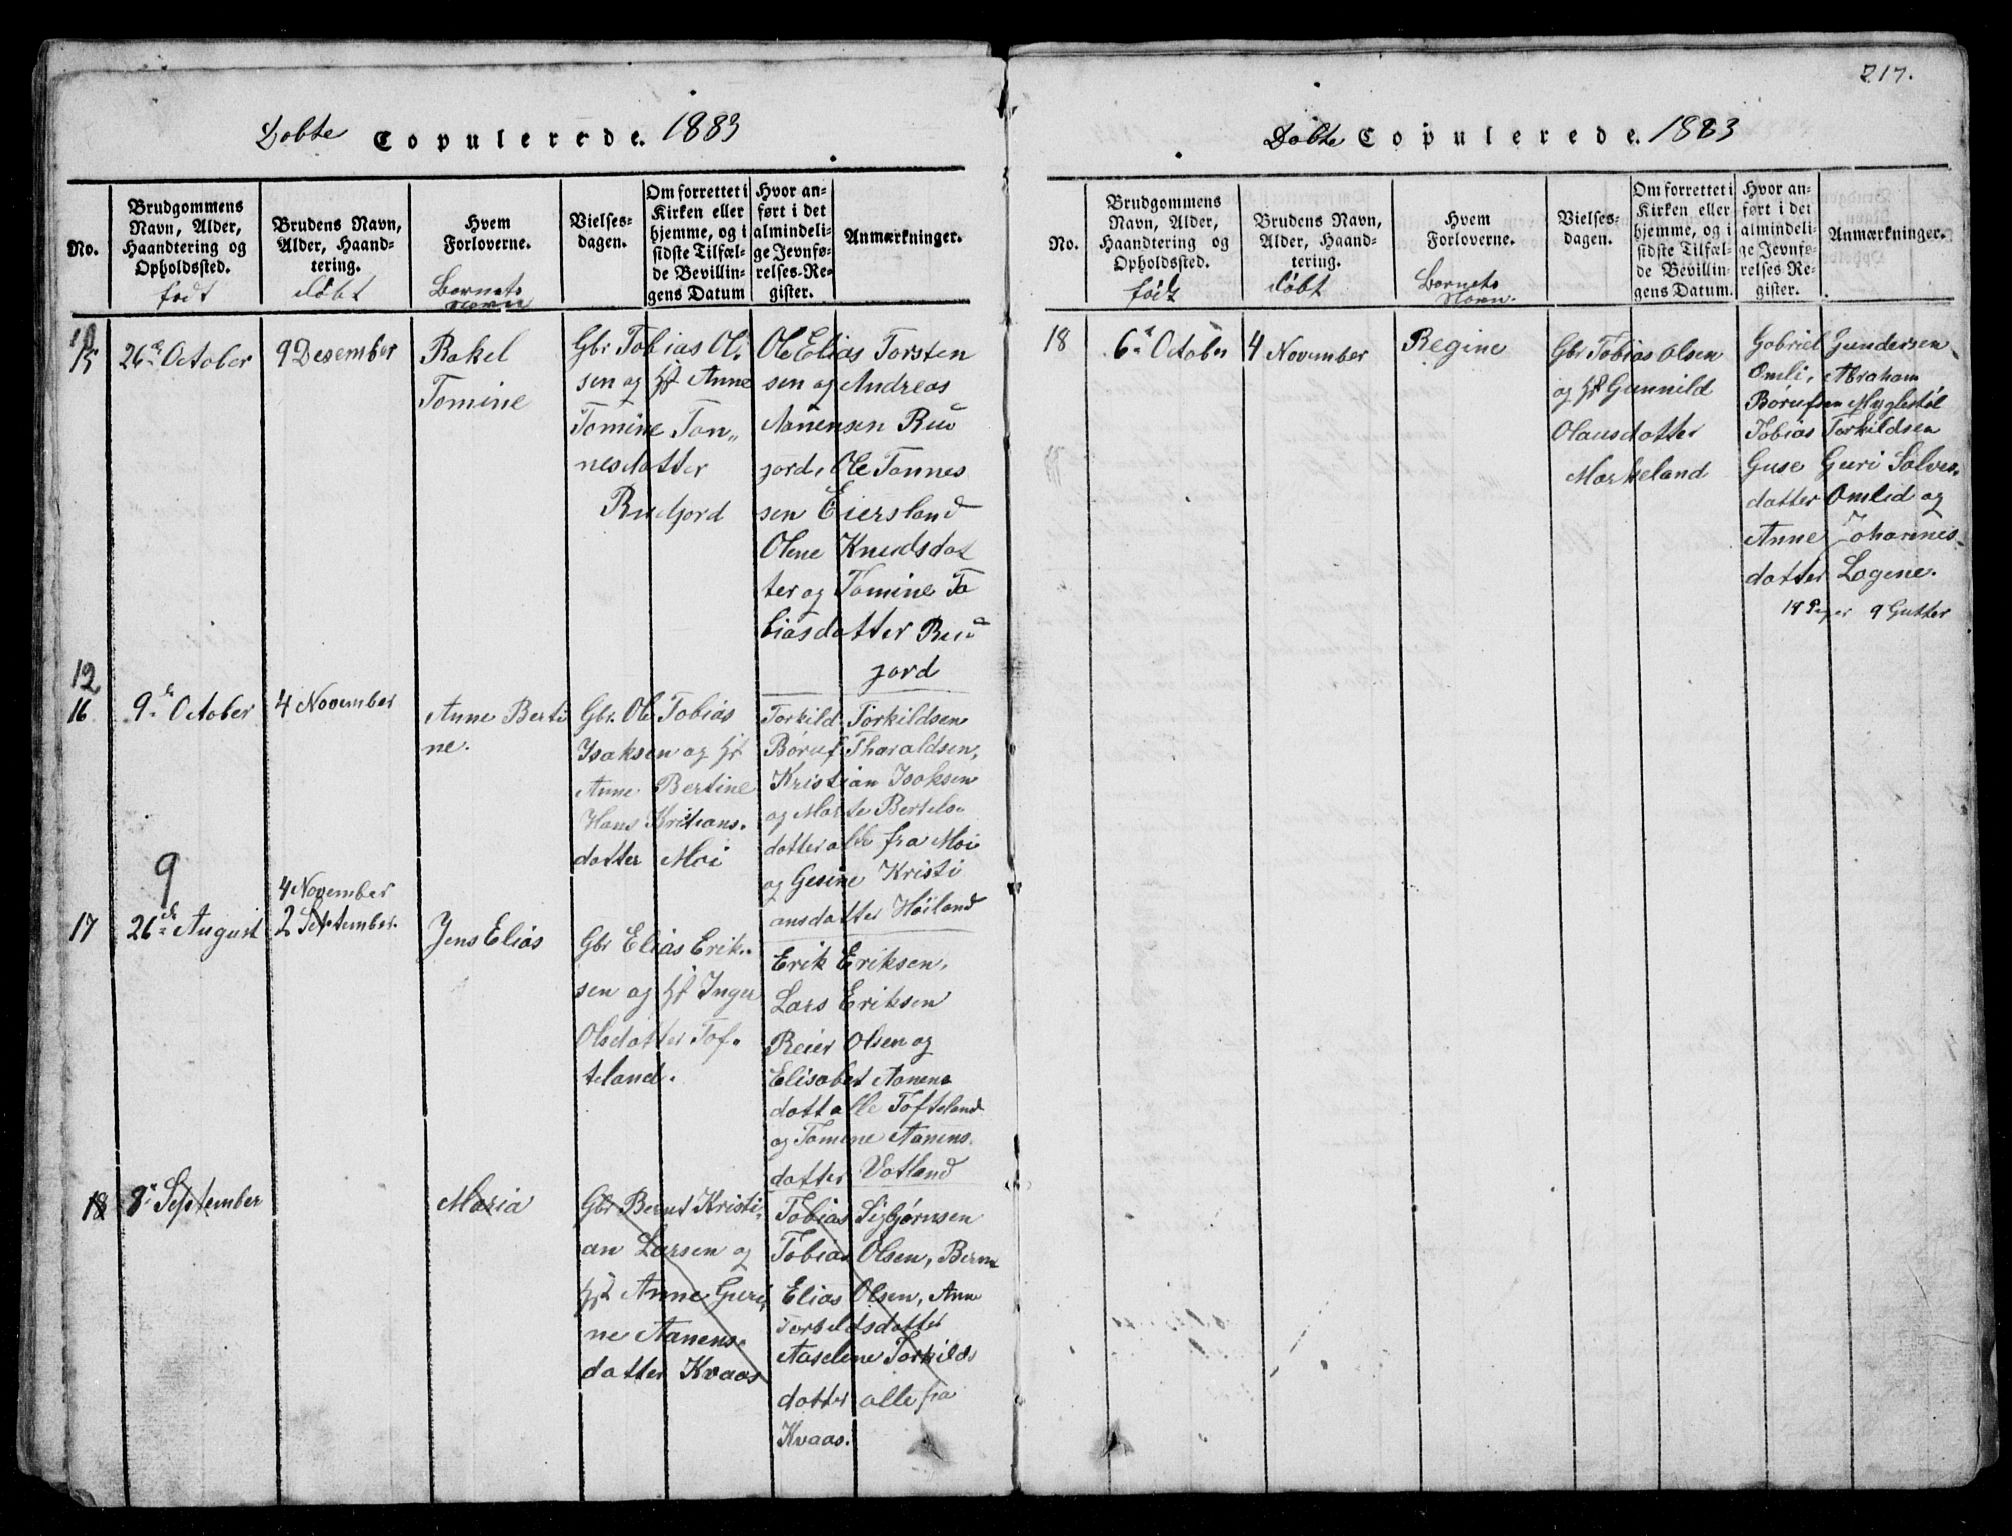 217.
Døbte Copulerede. 1883
No.
Brudgommens
Navn, Alder,
Haandtering og
Opholdssted.
født
Brudens Navn,
Alder, Haand-
tering.
døbt
Hvem
Forloverne.
Barnets
Navn
Vielses-
dagen.
Om forrettet i
Kirken eller
hjemme, og i
sidste Tilfæl-
de Bevillin-
gens Datum
Hvor an-
ført i det
almindeli-
ge Jevnfø-
relses-Re-
gister.
Anmærkninger.
15
26de October
9 Desember
Rakel
Tomine
Gbr Tobias Ol.
sen og Hst Anne
Tomine Tøn„
nesdatter
Rudjord
Ole Elias Torsten
sen og Andreas
Aanensen Rud
jord, Ole Tønnes
sen Eiersland
Olene Knudsdat
ter og Tomine To
biasdatter Rud
jord
12
16
9de October
4 November
Anne Berti
ne.
Gbr. Ole Tobias
Isaksen og Hst
Anne Bertine
Hans Kritians.
datter Moi
Torkild Torkildsen
Børuf Tharaldsen,
Kristian Isaksen
og Marte Bertels.
datter alle fra Moi
og Gesine Kristi
ansdatter Høiland
9
17
26de August
4 November
2 September.
Jens Elias
Gbr Elias Erik.
sen og Hst Inger
Olsdatter Tof.
teland.
Erik Eriksen,
Lars Eriksen
Reier Olsen og
Elisabet Aanens
datt alle Tofteland
og Tomine Aanens.
datter Vatland
18
8de September
Maria
Gbr Bernt Kristi.
an Larsen og
Hst Anne Guri
ne Aanens.
datter Kvaas
Tobias Sigbjørnsen
Tobias Olsen, Bern
Elias Olsen, Ann
Torkildsdatter
Aaselene Torkilds
datter alle fra
Kvaas.
Døbte Copulerede. 1883
No.
Brudgommens
Navn, Alder,
Haandtering og
Opholdssted.
født
Brudens Navn,
Alder, Haand-
tering.
døbt
Hvem
Forloverne.
Barnets
Navn.
Vielses-
dagen.
Om forrettet i
Kirken eller
hjemme, og i
sidste Tilfæl-
de Bevillin-
gens Datum.
Hvor an-
ført i det
almindeli-
ge Jevnfø-
relses Re-
gister.
Anmærkninger.
18
6te Octobr
4 November
Regine
Gbr Tobias Olsen
og Hst Gunnild
Olausdatter
Markeland
Gabriel Gundersen
Omli, Abraham
Børufsen Myglestøl
Tobias Torkildsen
Guse Guri Salves.
datter Omlid og
Anne Johannes.
datter Lagene.
18 Piger 9 Gutter